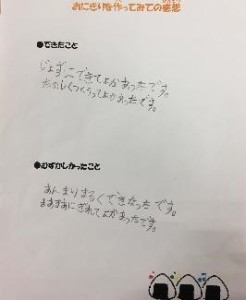 おにぎりを作ってみての感想
●できたこと
じょずにできてよかあったです。
たのしくつくっしよかったです。
●むずかしかったこと
あんまりまるくできなったです。
まあまあにぎれてよかあったです。